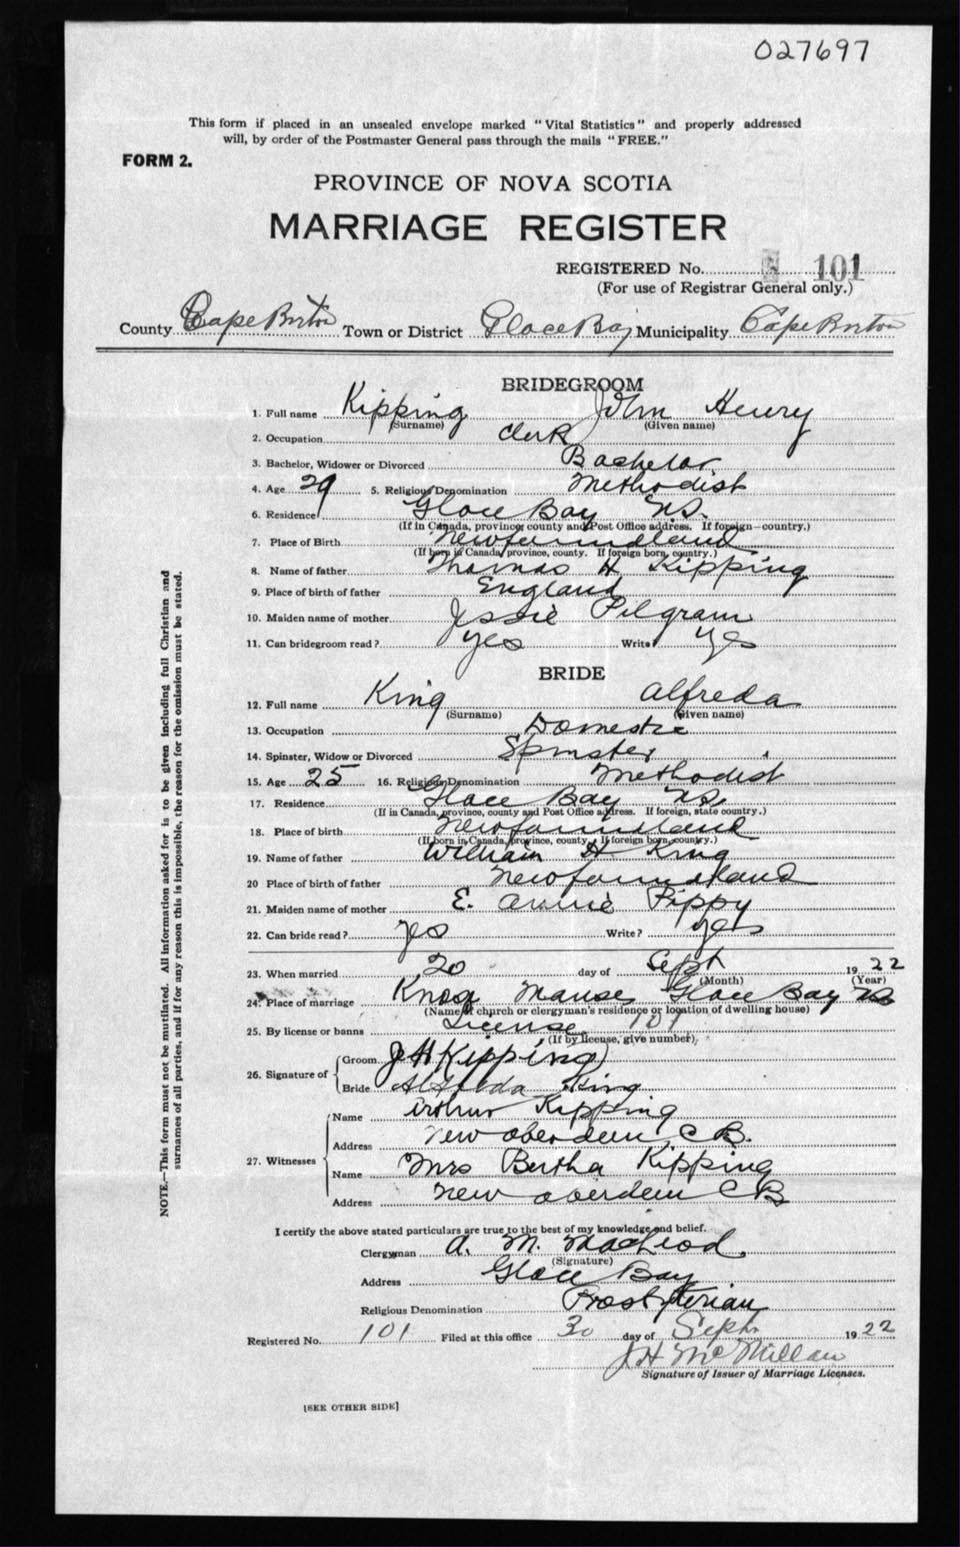 027697
This form if placed in an unsealed envelope marked "Vital Statistics" and properly addressed
will, by order of the Postmaster General pass through the mails "FREE."
FORM 2.
PROVINCE OF NOVA SCOTIA
MARRIAGE REGISTER
REGISTERED No. 101
(For use of Registrar General only.)
County Cape Breton Town or District Glace Bay Municipality Cape Breton
BRIDEGROOM
1. Full name Kipping John Henry
(Surname) (Given name)
2. Occupation Clerk
3. Bachelor, Widower or Divorced Bachelor
4. Age 29 5. Religious Denomination Methodist
6. Residence Glace Bay NS.
(If in Canada, province county and Post Office address. If foreign—country.)
7. Place of Birth Newfoundland
(If born in Canada, province, county. If foreign born, country.)
8. Name of father Thomas H Kipping
9. Place of birth of father England
10. Maiden name of mother Jessie Pilgram
11. Can bridegroom read? yes Write yes
BRIDE
12. Full name King Alfreda
(Surname) (Given name)
13. Occupation Domestic
14. Spinster, Widow or Divorced Spinster
15. Age 25 16. Religious Denomination Methodist
17. Residence Glace Bay NS.
(If in Canada, province, county and Post Office address. If foreign, state country.)
18. Place of birth Newfoundland
(If born in Canada, province, county. If foreign born, country.)
19. Name of father William H King
20 Place of birth of father Newfoundland
21. Maiden name of mother E. Annie Pippy
22. Can bride read? yes Write? yes
23. When married 20 day of Sept 1922
(Month) (Year)
24. Place of marriage Knox Manse Glace Bay NS
(Name of church or clergyman's residence or location of dwelling house)
25. By license or banns License 101
(If by license, give number)
26. Signature of
Groom J H Kipping
Bride Alfreda King
27. Witnesses
Name Arthur Kipping
Address New Aberdeen, C B.
Name Mrs Bertha Kipping
Address New Aberdeen C B
I certify the above stated particulars are true to the best of my knowledge and belief.
Clergyman A. M. MacLeod
(Signature)
Address Glace Bay
Religious Denomination Presbyterian
Registered No. 101 Filed at this office 30 day of Sept 1922
J H McMillan
Signature of Issuer of Marriage Licenses.
[SEE OTHER SIDE]
NOTE.—This form must not be mutilated. All information asked for is to be given including full Christian and
surnames of all parties, and if for any reason this is impossible, the reason for the omission must be stated.